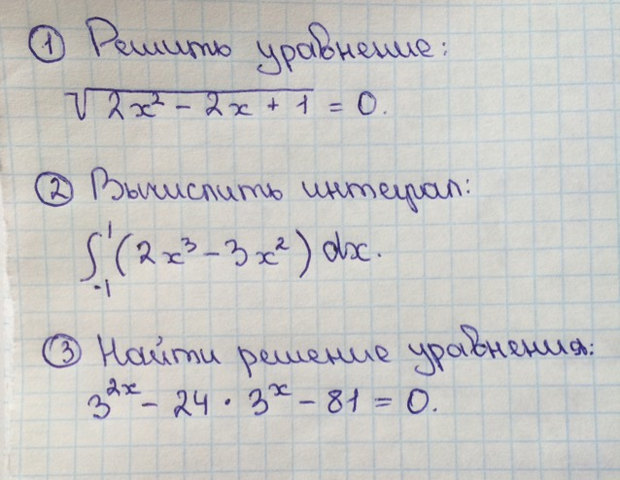 ① Решить уравнение:
√(2x² - 2x + 1) = 0.
② Вычислить интеграл:
∫₋₁¹ (2x³ - 3x²) dx.
③ Найти решение уравнения:
3²ˣ - 24 · 3ˣ - 81 = 0.